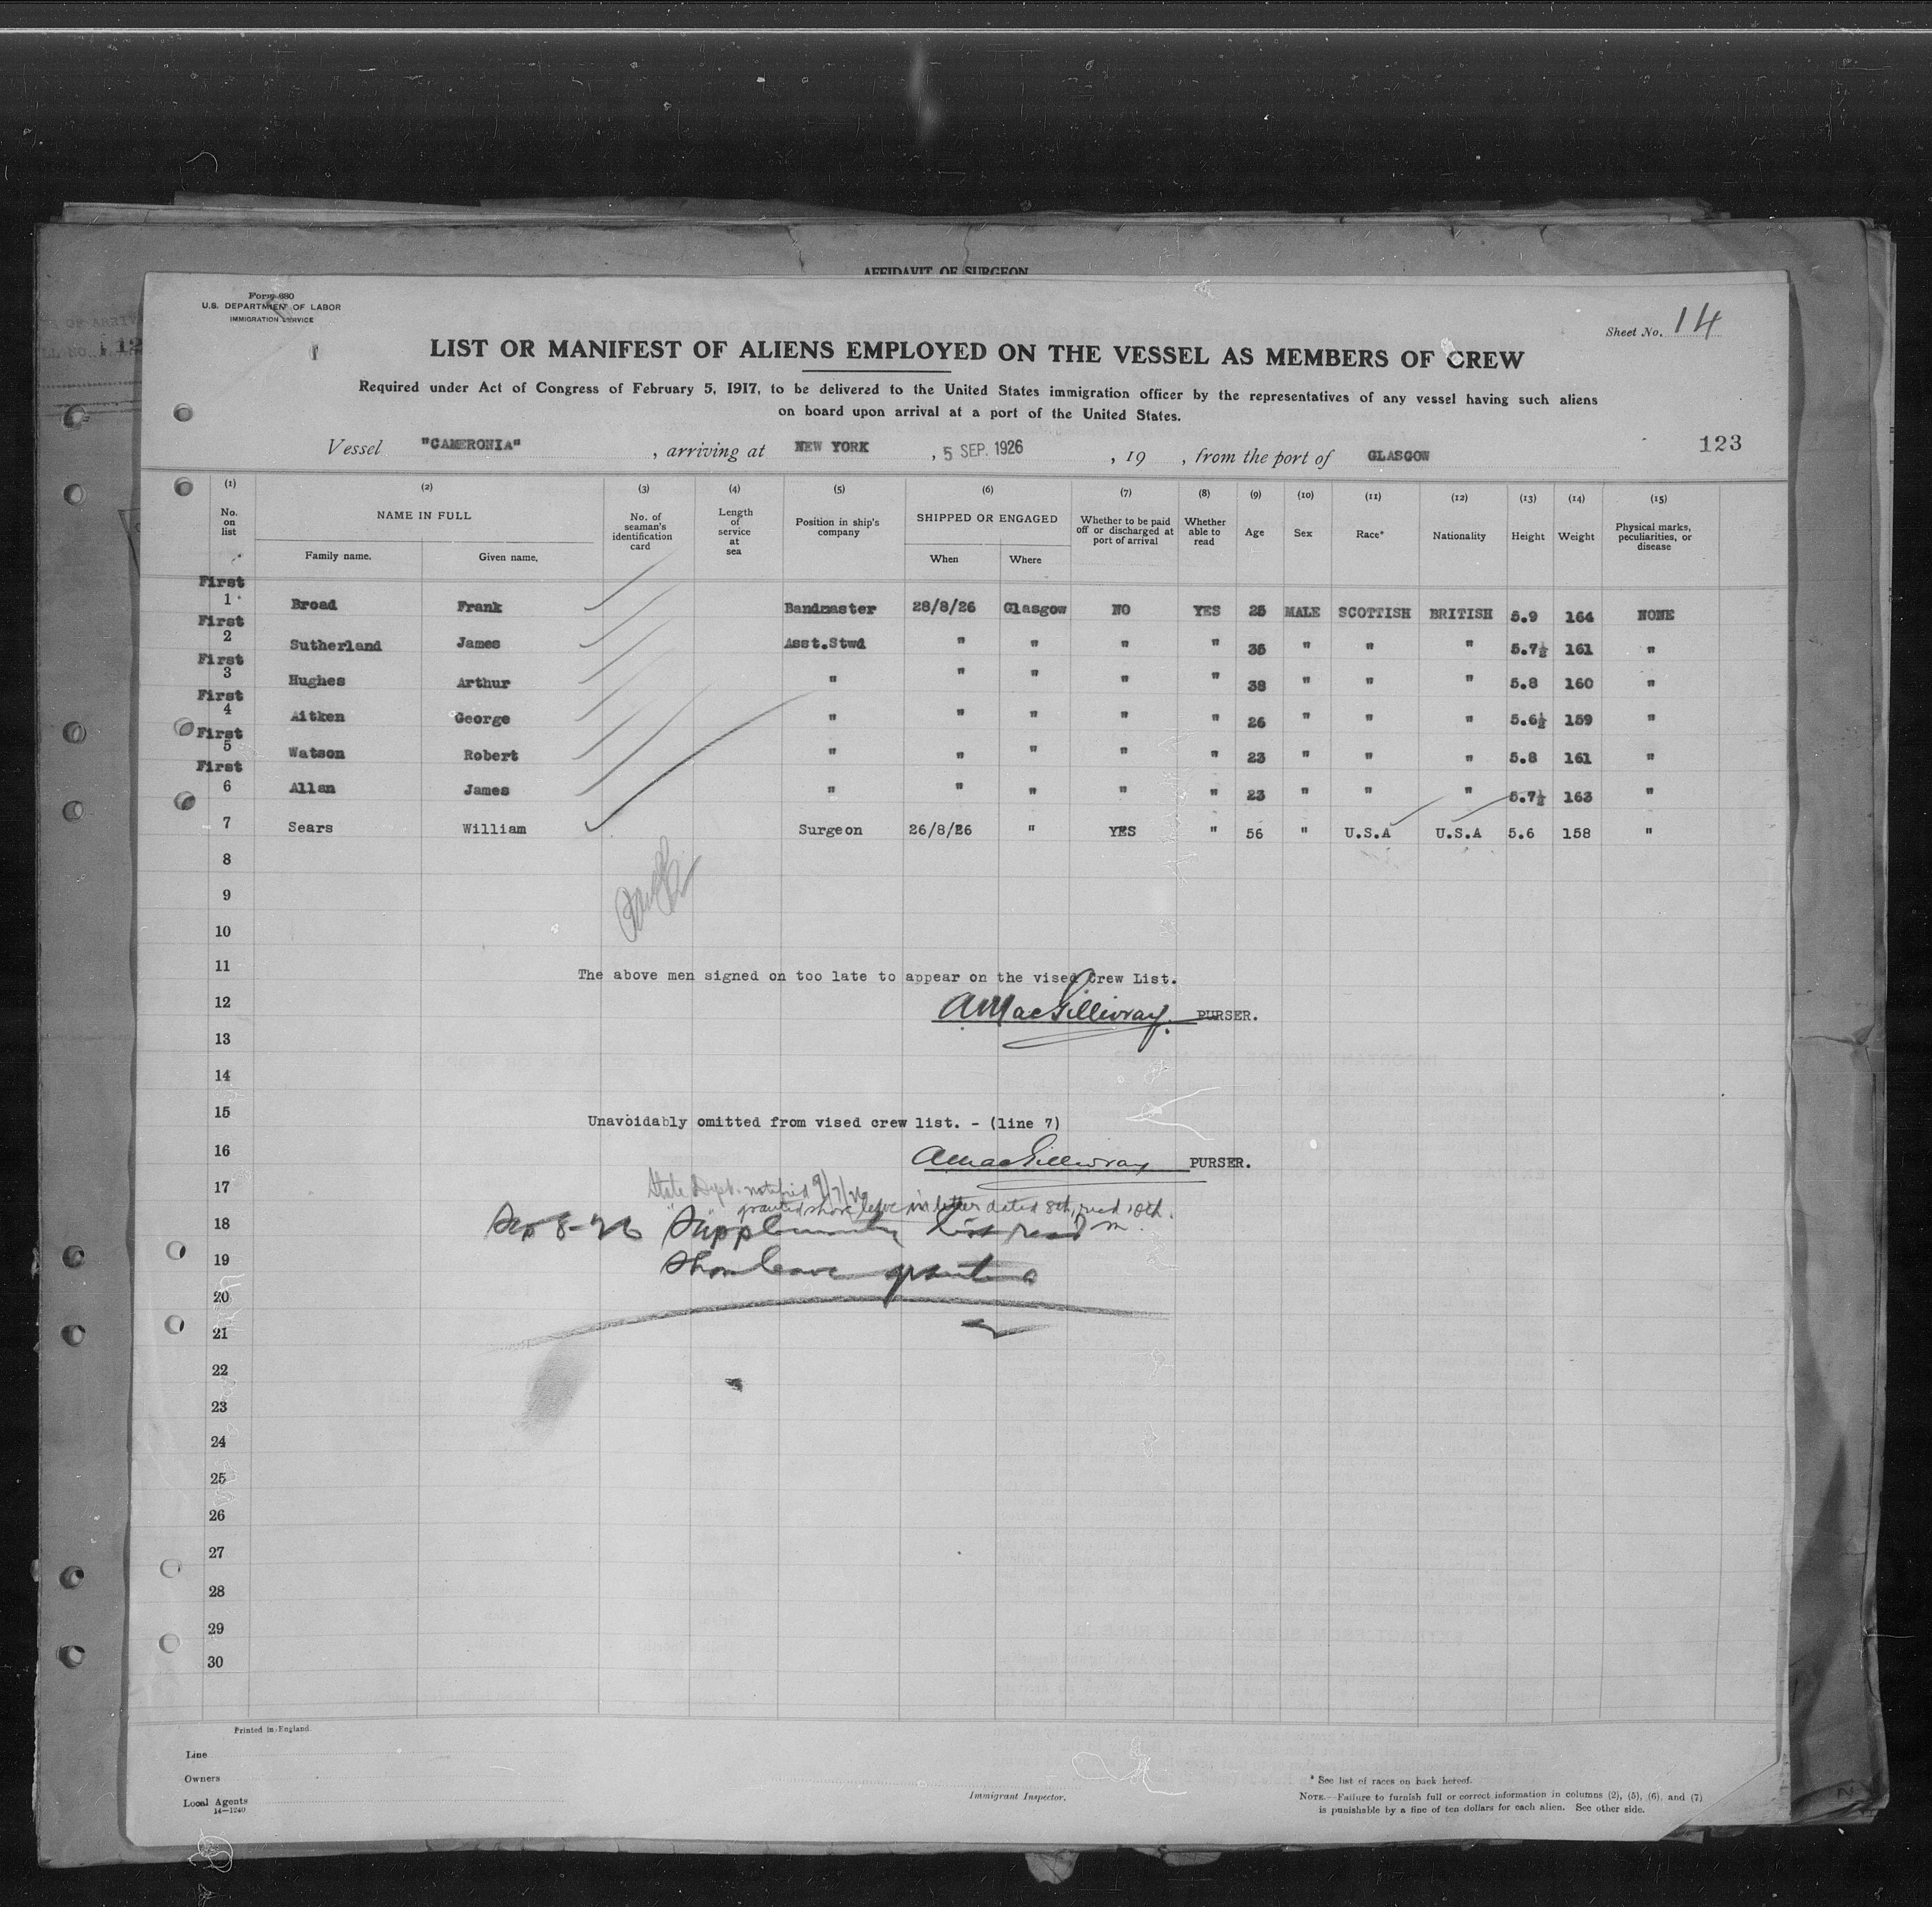 AFFIDAVIT OF SURGEON
Form 680
U.S. DEPARTMENT OF LABOR
IMMIGRATION SERVICE
Sheet No. 14
LIST OR MANIFEST OF ALIENS EMPLOYED ON THE VESSEL AS MEMBERS OF CREW
Required under Act of Congress of February 5, 1917, to be delivered to the United States immigration officer by the representatives of any vessel having such aliens
on board upon arrival at a port of the United States.
Vessel "CAMERONIA", arriving at NEW YORK, 5 SEP. 1926, 19 , from the port of GLASGOW
123
(1) (2) (3) (4) (5) (6) (7) (8) (9) (10) (11) (12) (13) (14) (15)
No. on list NAME IN FULL Family name. Given name. No. of seaman's identification card Length of service at sea Position in ship's company SHIPPED OR ENGAGED When Where Whether to be paid off or discharged at port of arrival Whether able to read Age Sex Race* Nationality Height Weight Physical marks, peculiarities, or disease
First
1 Broad Frank Bandmaster 28/8/26 Glasgow NO YES 25 MALE SCOTTISH BRITISH 5.9 164 NONE
First
2 Sutherland James Asst.Stwd " " " " 35 " " " 5.7½ 161 "
First
3 Hughes Arthur " " " " " 38 " " " 5.8 160 "
First
4 Aitken George " " " " " 26 " " " 5.6½ 159 "
First
5 Watson Robert " " " " " 23 " " " 5.8 161 "
First
6 Allan James " " " " " 23 " " " 5.7½ 163 "
7 Sears William Surgeon 26/8/26 " YES " 56 " U.S.A U.S.A 5.6 158 "
8
9
10
11 The above men signed on too late to appear on the vised Crew List.
12 AMacGillivray. PURSER.
13
14
15 Unavoidably omitted from vised crew list. - (line 7)
16 AMacGillivray PURSER.
17 State Dept. notified 9/7/26
granted shore leave in letter dated 8th, recd 10th.
18 Sep 8-26 Supplementary list
19 Shore leave granted
20
21
22
23
24
25
26
27
28
29
30
Printed in England.
Line
Owners
Local Agents
14—1240
Immigrant Inspector.
* See list of races on back hereof.
NOTE.—Failure to furnish full or correct information in columns (2), (5), (6), and (7)
is punishable by a fine of ten dollars for each alien. See other side.